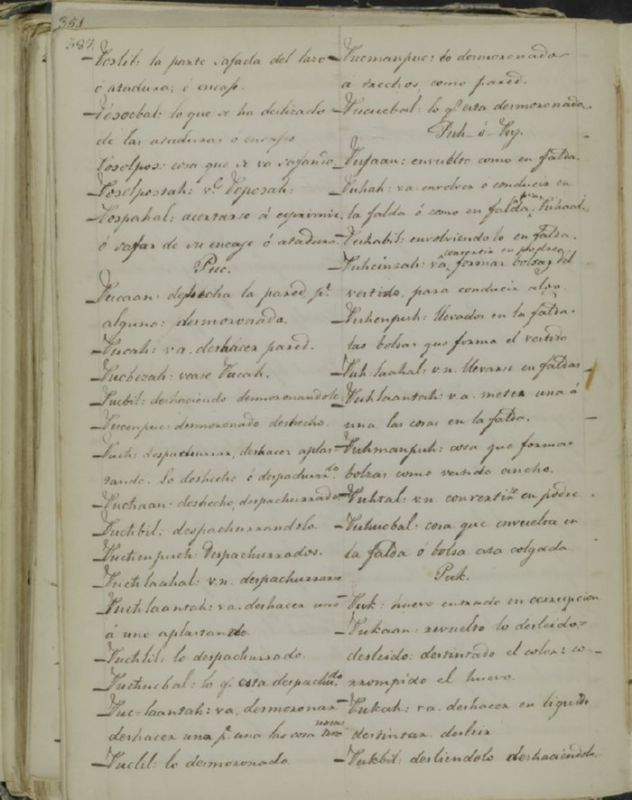 351
387.
Poslil: la parte safada del lazo
ó atadura, ó encaje.
Posocbal: lo que se ha deslizado
de las ataduras ó encajes
Posolpos: cosa que se va safando
Posolpostah: v.e Poposah.
Pospahal: acertarse á esprimir
ó safar de su encaje ó atadura.
Puc.
Pucaan: deshecha la pared pr.
alguno: desmoronado.
Pucah: va. deshacer pared.
Pucbezah: vease Pucah.
Pucbil: deshaciendo desmoronandole
Pucenpuc: desmoronado deshecho.
Puch: despachurrar, deshacer aplas-
tando. Lo deshecho ó despachurrado.
Puchaan: deshecho, despachurrado
Puchbil: despachurrandolo
Puchenpuch: Despachurrados.
Puchlaahal: v.n. despachurrarse
Puchlaantah: va. deshacer uno
á uno aplastando.
Puchlil: lo despachurrado.
Puchucbal: lo q. esta despachudo.
Puc-laantah: va. desmoronar
deshacer una pr. una las cosas
Puclil: lo desmoronado.
Pucmanpuc: lo desmoronado
á trechos, como pared.
Pucucbal: lo q. esta desmoronado.
Puh-ó-Puy.
Puhaan: envuelto como en falda.
Puhah: va. envolver ó conducir en
la falda ó como en falda.
Puhabil: envolviendo lo en falda.
vestido, para conducir algo.
Puhenpuh: llevados en la falda.
las bolsas que forma el vestido
Puh-laahal: v.n. llevarse en faldas
Puhlaantah: va. meter una á
una las cosas en la falda.
Puhmanpuh: cosa que forma
bolsas como vestido ancho.
Puhtal: v.n. convertirse en podre.
Puhucbal: cosa que envuelta en
la falda ó bolsa esta colgada
Puk.
Puk: huevo entrado en corrupcion
Pukaan: revuelto lo desleido:
desleido: destintado el color: co-
rrompido el huevo.
Pukah: va. deshacer en liquido
destintar. desleir
Pukbil: desliendolo deshaciendolo.